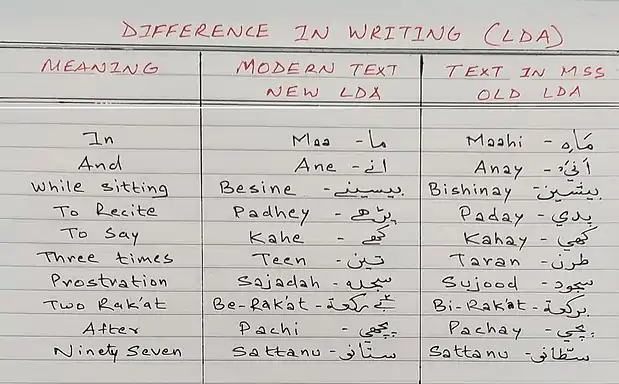 DIFFERENCE IN WRITING (LDA)
MEANING MODERN TEXT NEW LDA TEXT IN MSS OLD LDA
In Maa - ما Maahi - مَاره
And Ane - انے Anay - اَنيَ
While sitting Besine - بيسينے Bishinay - بيشين
To Recite Padhey - پڑھے Paday - پدي
To Say Kahe - کھے Kahay - کھي
Three times Teen - تين Taran - طرن
Prostration Sajadah - سجدہ Sujood - سجود
Two Rak'at Be-Rak'at - بے ركعة Bi-Rak'at - بركعة
After Pachi - پچھي Pachay - پچي
Ninety Seven Sattanu - ستانو Sattanu - سطّانو